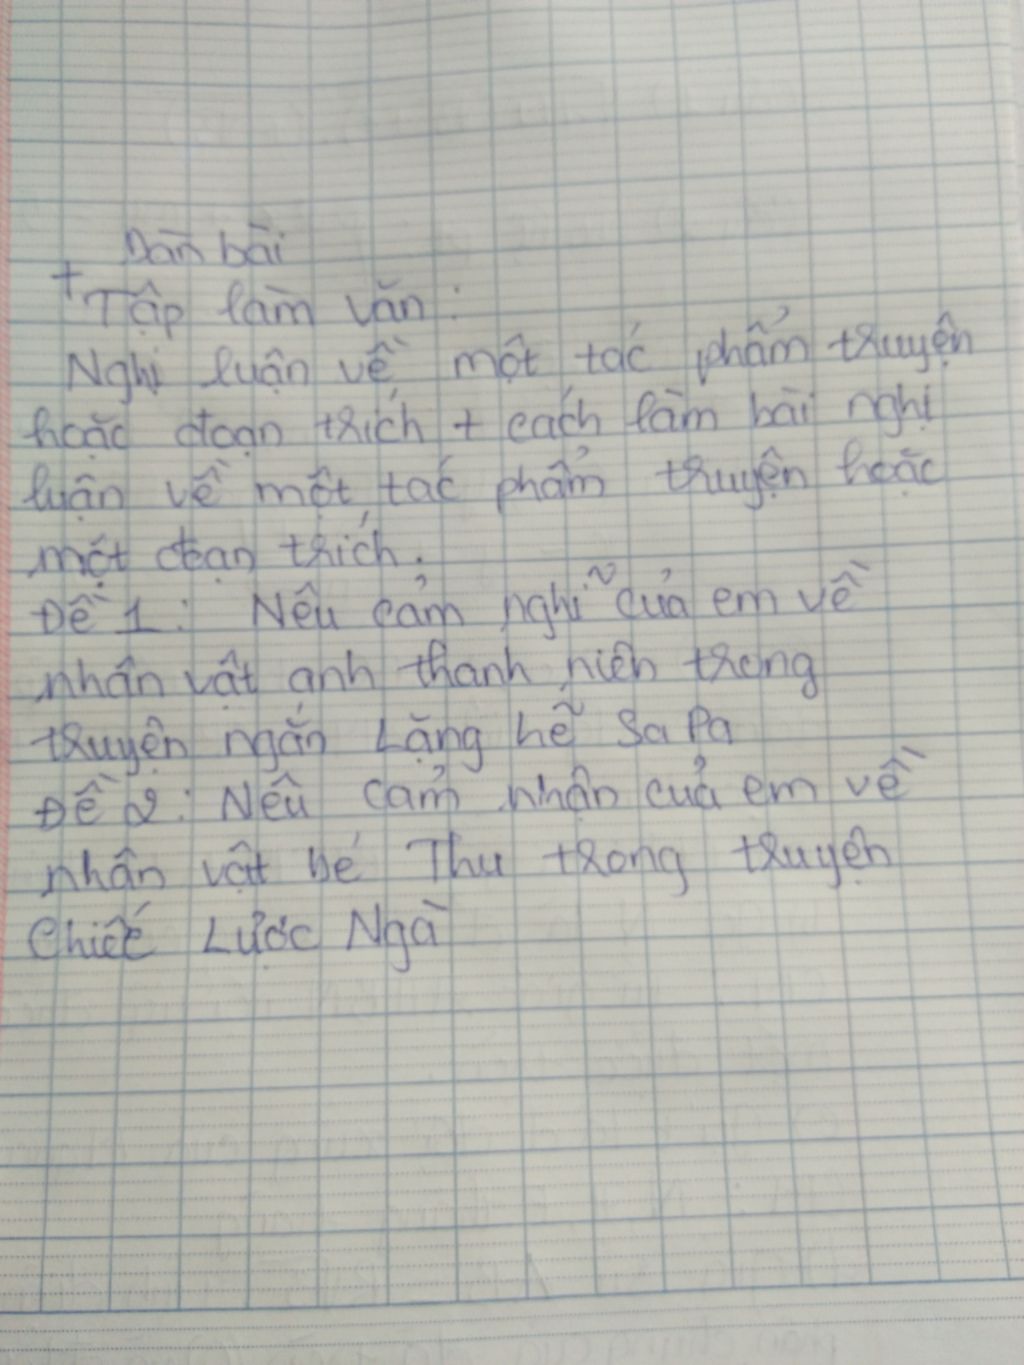 Dàn bài
+ Tập làm văn:
Nghị luận về một tác phẩm truyện
hoặc đoạn trích + cách làm bài nghị
luận về một tác phẩm truyện hoặc
một đoạn trích.
Đề 1: Nêu cảm nghĩ của em về
nhân vật anh thanh niên trong
truyện ngắn Lặng lẽ Sa Pa
Đề 2: Nêu cảm nhận của em về
nhân vật bé Thu trong truyện
Chiếc Lược Ngà